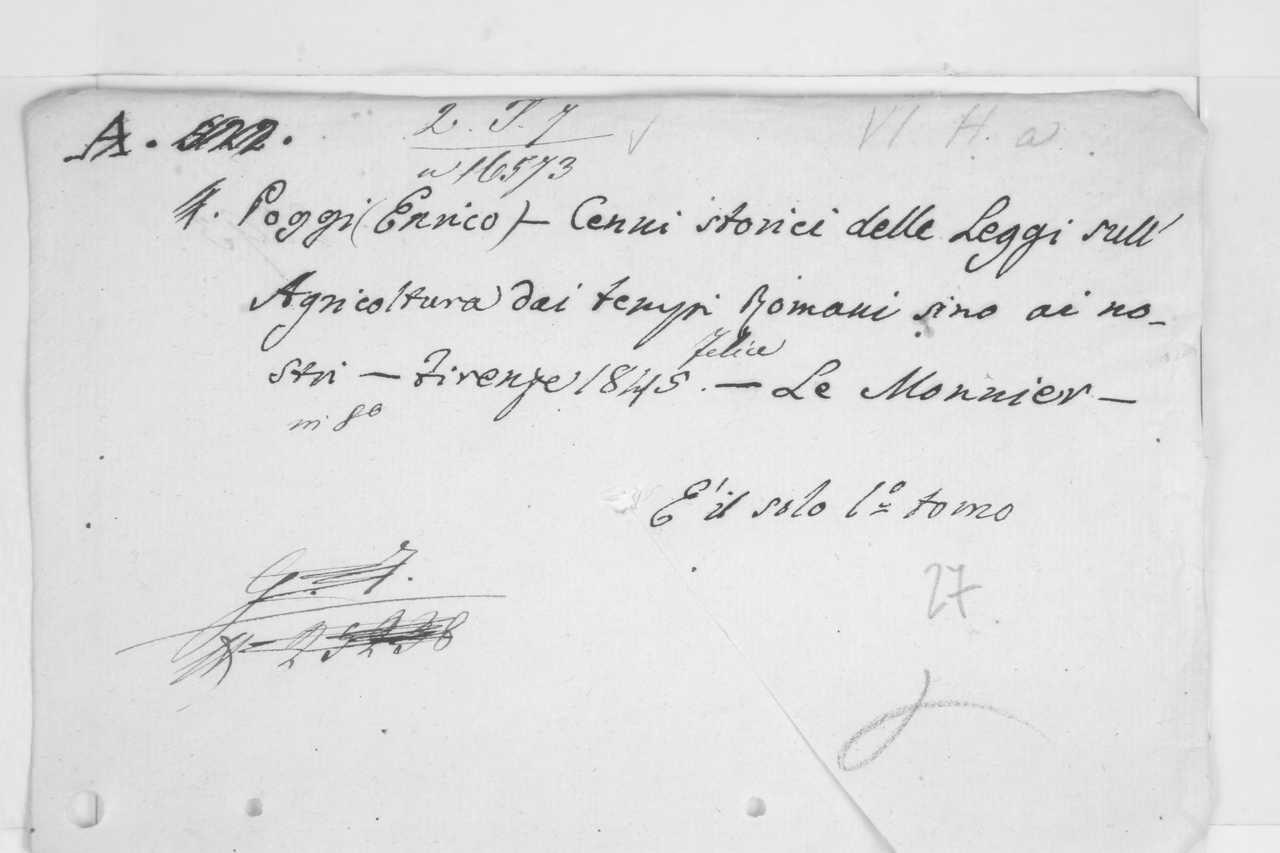 A. 522.
2. T. 7
n 16573
VI H. a
4. Poggi (Enrico) – Cenni storici delle Leggi sull'
Agricoltura dai tempi Romani sino ai no-
stri – Firenze 1845. – Felice Le Monnier –
in 8º
E' il solo 1º tomo
27